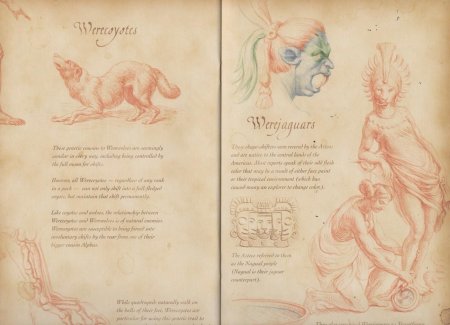 Werecoyotes
These genetic cousins to Werewolves are seemingly
similar in every way, including being controlled by
the full moon for shifts.
However, all Werecoyotes — regardless of any rank
in a pack — can not only shift into a full-fledged
coyote, but maintain that shift permanently.
Like coyotes and wolves, the relationship between
Werecoyotes and Werewolves is of natural enemies.
Werecoyotes are susceptible to being forced into
involuntary shifts by the roar from one of their
bigger cousin Alphas.
While quadrupeds naturally walk on
the balls of their feet, Werecoyotes are
particular for using this genetic trait to
Werejaguars
These shape-shifters were revered by the Aztecs
and are native to the central lands of the
Americas. Most reports speak of their odd flesh
color that may be a result of either face paint
or their tropical environment (which has
caused many an explorer to change color).
The Aztecs referred to them
as the Nagual people
(Nagual is their jaguar
counterpart).